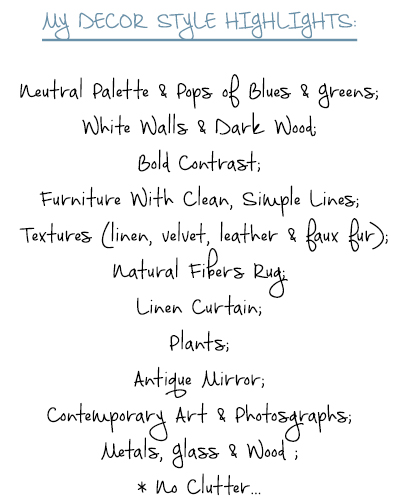 My DECOR STYLE HIGHLIGHTS:
Neutral Palette & Pops of Blues & Greens;
White Walls & Dark Wood;
Bold Contrast;
Furniture With Clean, Simple Lines;
Textures (linen, velvet, leather & faux fur);
Natural Fibers Rug;
Linen Curtain;
Plants;
Antique Mirror;
Contemporary Art & Photosgraphs;
Metals, Glass & Wood ;
* No Clutter...